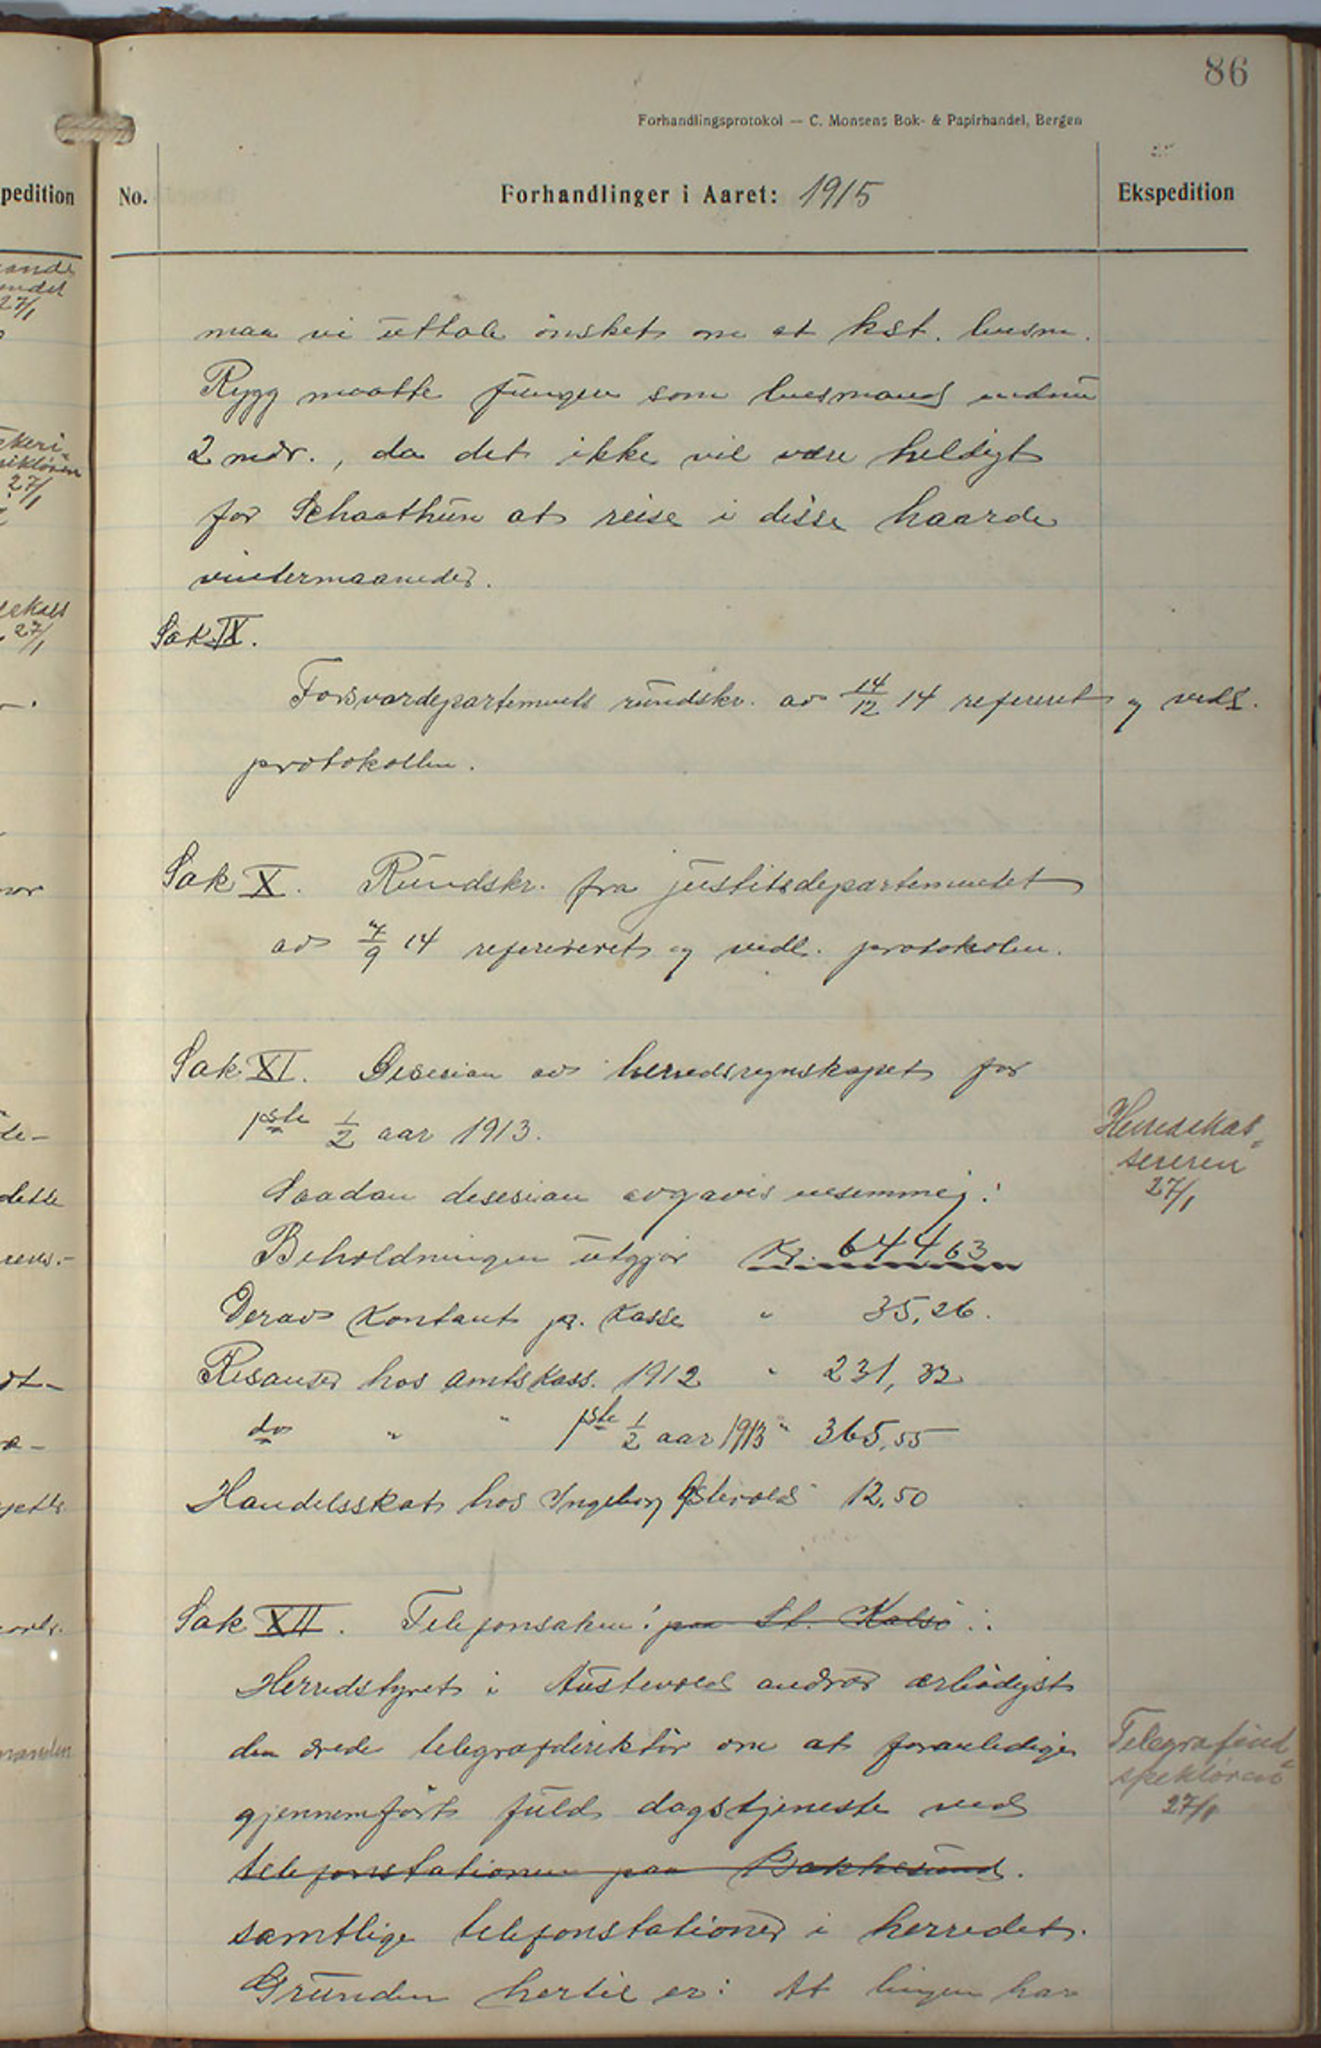 86
Forhandlingsprotokol — C. Monsens Bok- & Papirhandel, Bergen
pedition
No.
Forhandlinger i Aaret: 1915
Ekspedition
maa vi uttale ønsket om at kst. lensm.
Rygg maatte fungere som lensmand endnu
2 mdr., da det ikke vil være heldigt
for Schaathun at reise i disse haarde
vintermaaneder.
Sak IX.
Forsvardepartements rundskr. av 14/12 14 referert og vedl.
protokollen.
Sak X. Rundskr. fra justitsdepartementet
av 7/9 14 refereret og vedl. protokolen.
Sak XI. Desesion av herredsregnskapet for
1ste 1/2 aar 1913.
Herredskas=
sereren
27/1
Saadan desesion avgaves enstemmig:
Beholdningen utgjør Kr. 644,63
Derav Kontant pr. Kasse " 35,26.
Resanser hos amtskass. 1912 " 231,32
do " " 1ste 1/2 aar 1913 " 365,55
Handelsskat hos Ingeborg Østervold 12,50
Sak XII. Telefonsaken: paa St. Kalsø:.
Herredstyret i Austevold andrar ærbødigst
den ærede telegrafdirektør om at foranledige
gjennemført fuld dagstjeneste ved
telefonstationen paa Bakkesund.
samtlige telefonstationer i herredet.
Grunden hertil er: At ingen har
Telegrafind=
spektøren
27/1